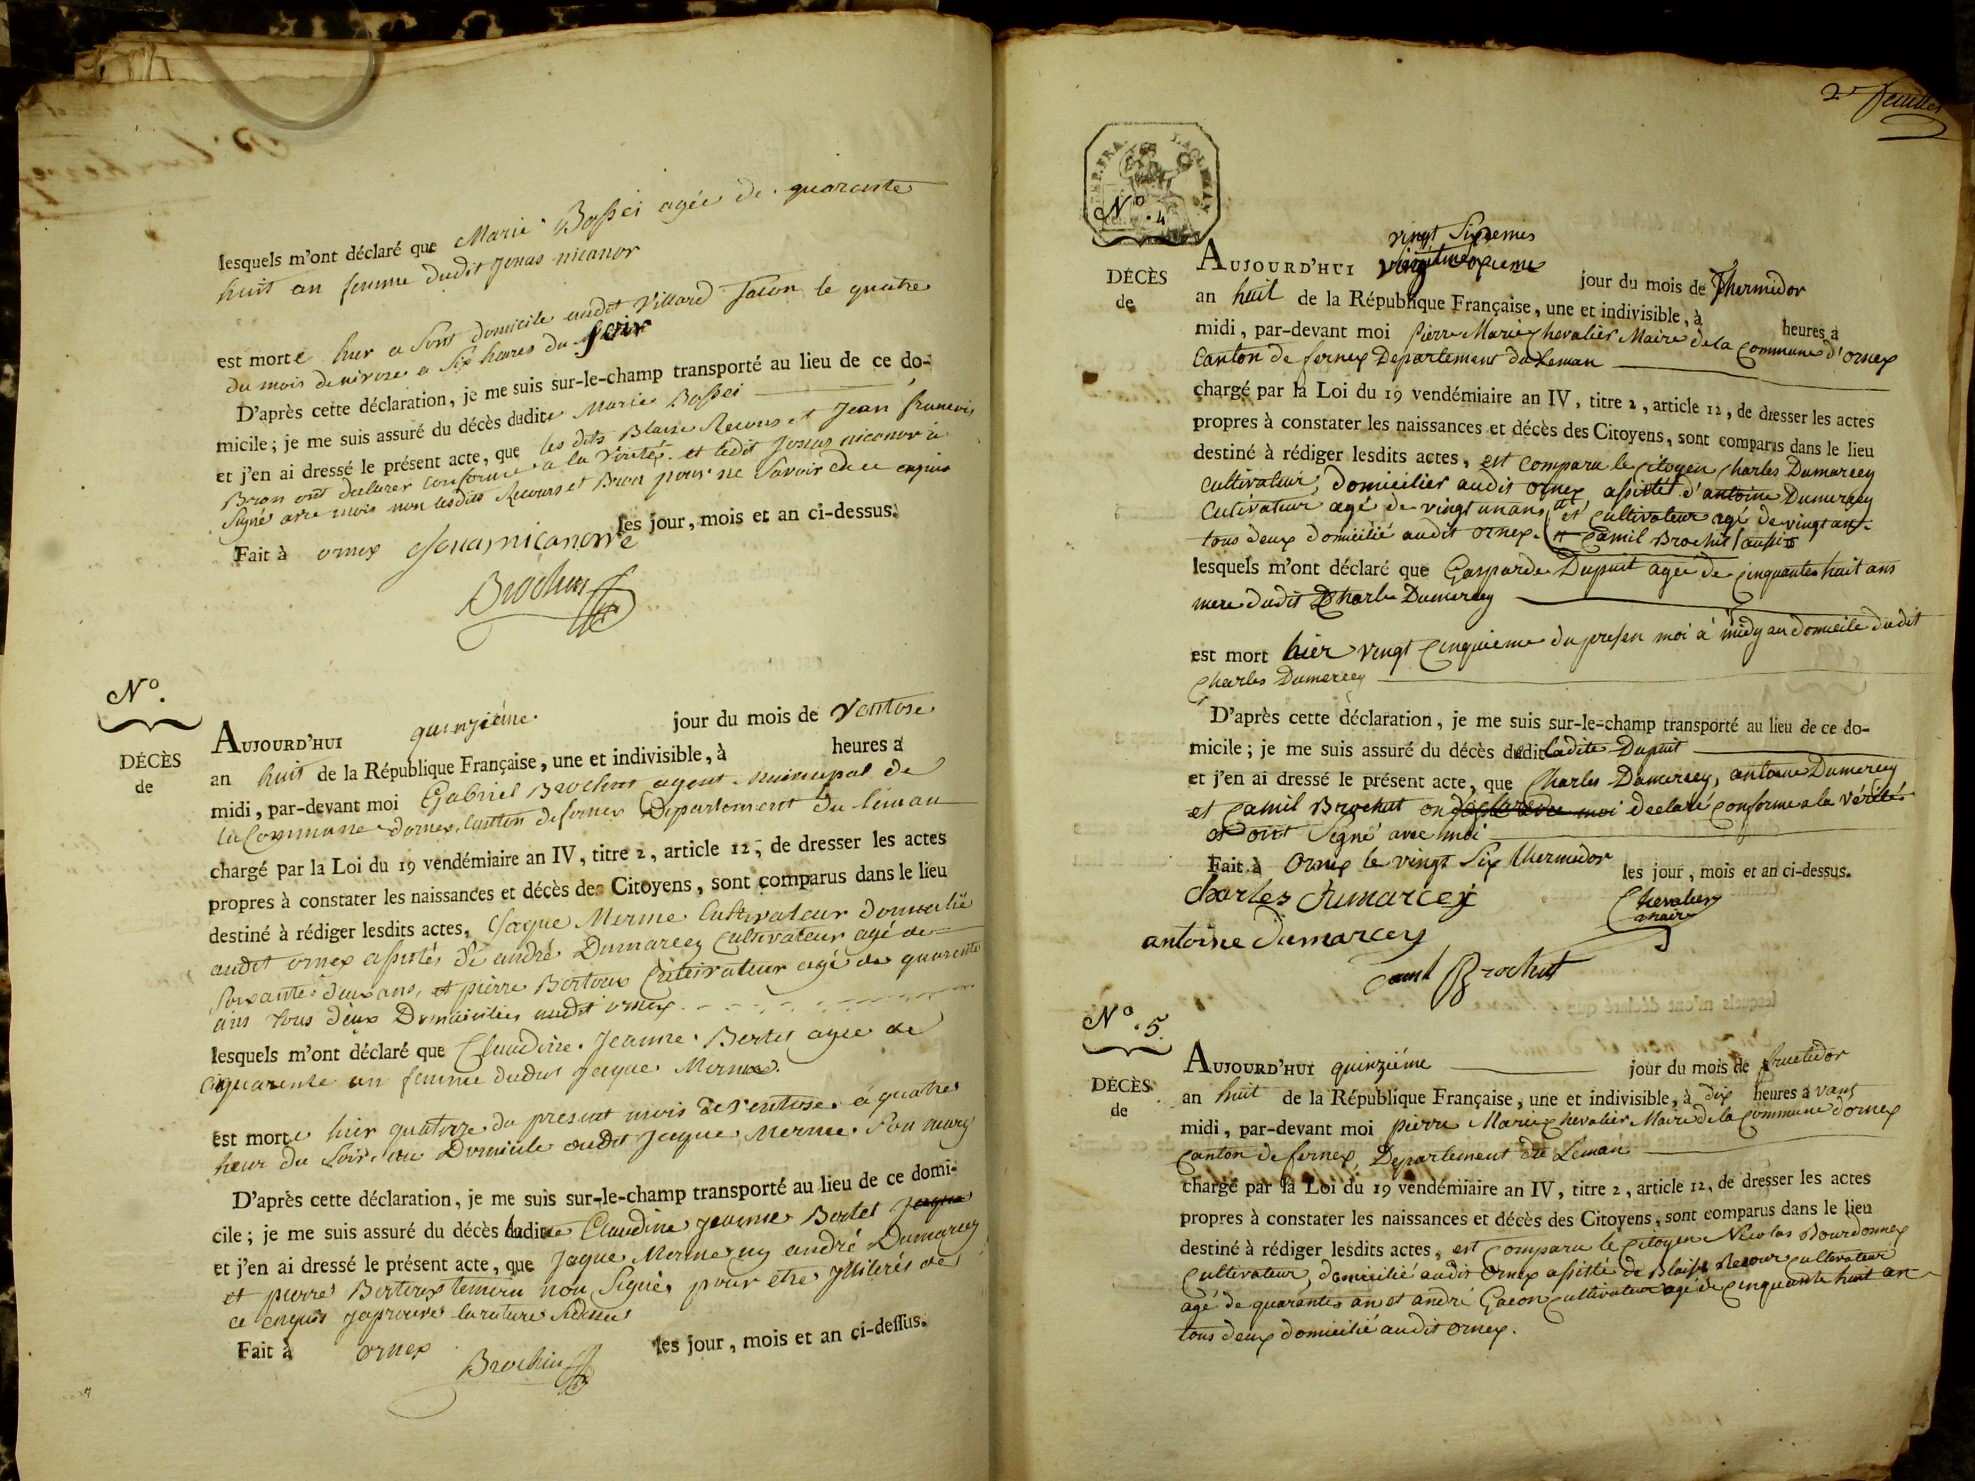 lesquels m'ont déclaré que Marie Bossei agée de quarente
huit an femme dudit Jonas nicanor
est morte hier a sont domicile audit Villard Tacon le quatre
du mois de nivose a Six heures du soir
D'après cette déclaration, je me suis sur-le-champ transporté au lieu de ce do-
micile; je me suis assuré du décès dudite Marie Bossei
et j'en ai dressé le présent acte, que les dits Blaise Recours et Jean francois
Bron ont declarer conforme a la Vérité. et ledit Jonas nicanor à
Signé avec mois non lesdits Recours et Bron pour ne Savoir de ce enquis
Fait à ornex les jour, mois et an ci-dessus.
Jonas nicanorre
Brochut
N°.
DÉCÈS
de
AUJOURD'HUI quinzième jour du mois de Ventose
an huit de la République Française, une et indivisible, à heures a
midi, par-devant moi Gabriel Brochut agent municipal de
la Commune dornex, Canton de fernex Departement du léman
chargé par la Loi du 19 vendémiaire an IV, titre 2, article 12, de dresser les actes
propres à constater les naissances et décès des Citoyens, sont comparus dans le lieu
destiné à rédiger lesdits actes, Jaque Merme Cultivateur domicilié
audit ornex assistés de andré Dumarcey Cultivateur agé de
Soixante deux ans, et pierre Bertoux Cultivateur agé de quarente
ans tous deux Domiciliés audit ornex
lesquels m'ont déclaré que Claudine Jeanne Bertet agée de
cinquarente an femme dudit Jaque Merme.
est morte hier quatorze du present mois de Ventose à quatre
heur du Soir au Domicile dudit Jaque Merme Son mary
D'après cette déclaration, je me suis sur-le-champ transporté au lieu de ce domi-
cile; je me suis assuré du décès ladite Claudine Jeanne Bertet Jaque
et j'en ai dressé le présent acte, que Jaque Merme ny andré Dumarcey
et pierre Bertoux temoin non Signés pour etre Illiterés de
ce enquis Japrouve la rature Sidessus
Fait à ornex les jour, mois et an ci-dessus.
Brochut
2e feuillet
N°. 4
DÉCÈS
de
vingt Sixiemes
AUJOURD'HUI jour du mois de Thermidor
an huit de la République Française, une et indivisible, à heures a
midi, par-devant moi Pierre Marie Chevalier Maire de la Commune d'ornex
Canton de fernex Departement du Leman
chargé par la Loi du 19 vendémiaire an IV, titre 2, article 12, de dresser les actes
propres à constater les naissances et décès des Citoyens, sont comparus dans le lieu
destiné à rédiger lesdits actes, est comparu le Citoyen Charles Dumarcey
Cultivateur, domicilier audit ornex assistét d'antoine Dumercey
Cultivateur agé de vingt un ans et Cultivateur agé de vingt an
tous deux domicilié audit ornex. Camil Brochut aussi
lesquels m'ont déclaré que Gasparde Dupuit agée de Cinquante huit ans
mere dudit Charle Dumercey
est mort hier vingt Cinquieme du presen moi à midy au domicile dudit
Charles Dumercey
D'après cette déclaration, je me suis sur-le-champ transporté au lieu de ce do-
micile; je me suis assuré du décès dudit ladite Dupuit
et j'en ai dressé le présent acte, que Charles Dumercey, antoine Dumercey
et Camil Brochut on declaré conforme a la Vérité
et ont Signé avec moi
Fait à Ornex le vingt Six thermidor les jour, mois et an ci-dessus.
Charles dumarcey
Chevalier
maire
antoine dumarcey
Caml Brochut
N°. 5.
DÉCÈS
de
AUJOURD'HUI quinziéme jour du mois de fructidor
an huit de la République Française, une et indivisible, à dix heures avant
midi, par-devant moi pierre Marie Chevalier Maire de la Commune d'ornex
Canton de fernex, Departement du Leman
chargé par la Loi du 19 vendémiaire an IV, titre 2, article 12, de dresser les actes
propres à constater les naissances et décès des Citoyens, sont comparus dans le lieu
destiné à rédiger lesdits actes, est comparu le Citoyen Nicolas Bourdonnex
Cultivateur, domicilié audit Ornex assisté de Blaise Recour Cultivateur
agé de quarante an et andré Gacon Cultivateur agé de Cinquante huit an
tous deux domicilié audit ornex.